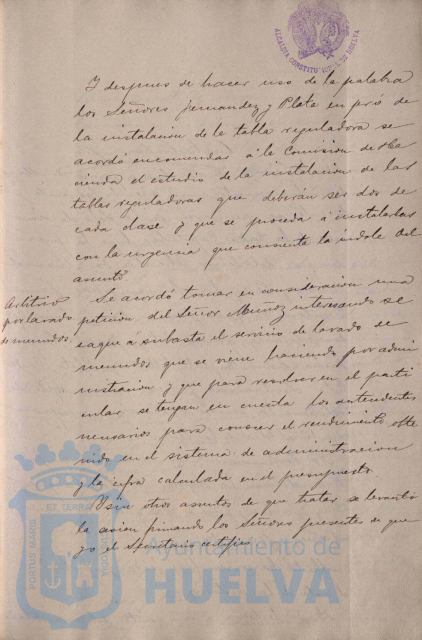 ALCALDIA CONSTITUCIONAL DE HUELVA
Y despues de hacer uso de la palabra
los Señores Jernandez y Plata en pró de
la instalacion de la tabla reguladora se
acordó encomendar á la Comision de Ha
cienda el estudio de la instalacion de las
tablas reguladoras que deberán ser dos de
cada clase y que se proceda á instalarlas
con la urgencia que consienta la índole del
asunto.
Arbitrio
por lavado
de menudos.
Se acordó tomar en consideracion una
peticion del Señor Muñoz interesando se
saque a subasta el servicio de lavado de
menudos que se viene haciendo por admi
nistracion y que para resolver en el parti
cular se tengan en cuenta los antecedentes
necesarios para conocer el rendimiento obte
nido en el sistema de administracion
y la cifra calculada en el presupuesto.
Y sin otros asuntos de que tratar se levantó
la sesion firmando los Señores presentes de que
yo el Secretario certifico
PORTUS MARIS ET TERRAE CUSTODIA
Ayuntamiento de
HUELVA